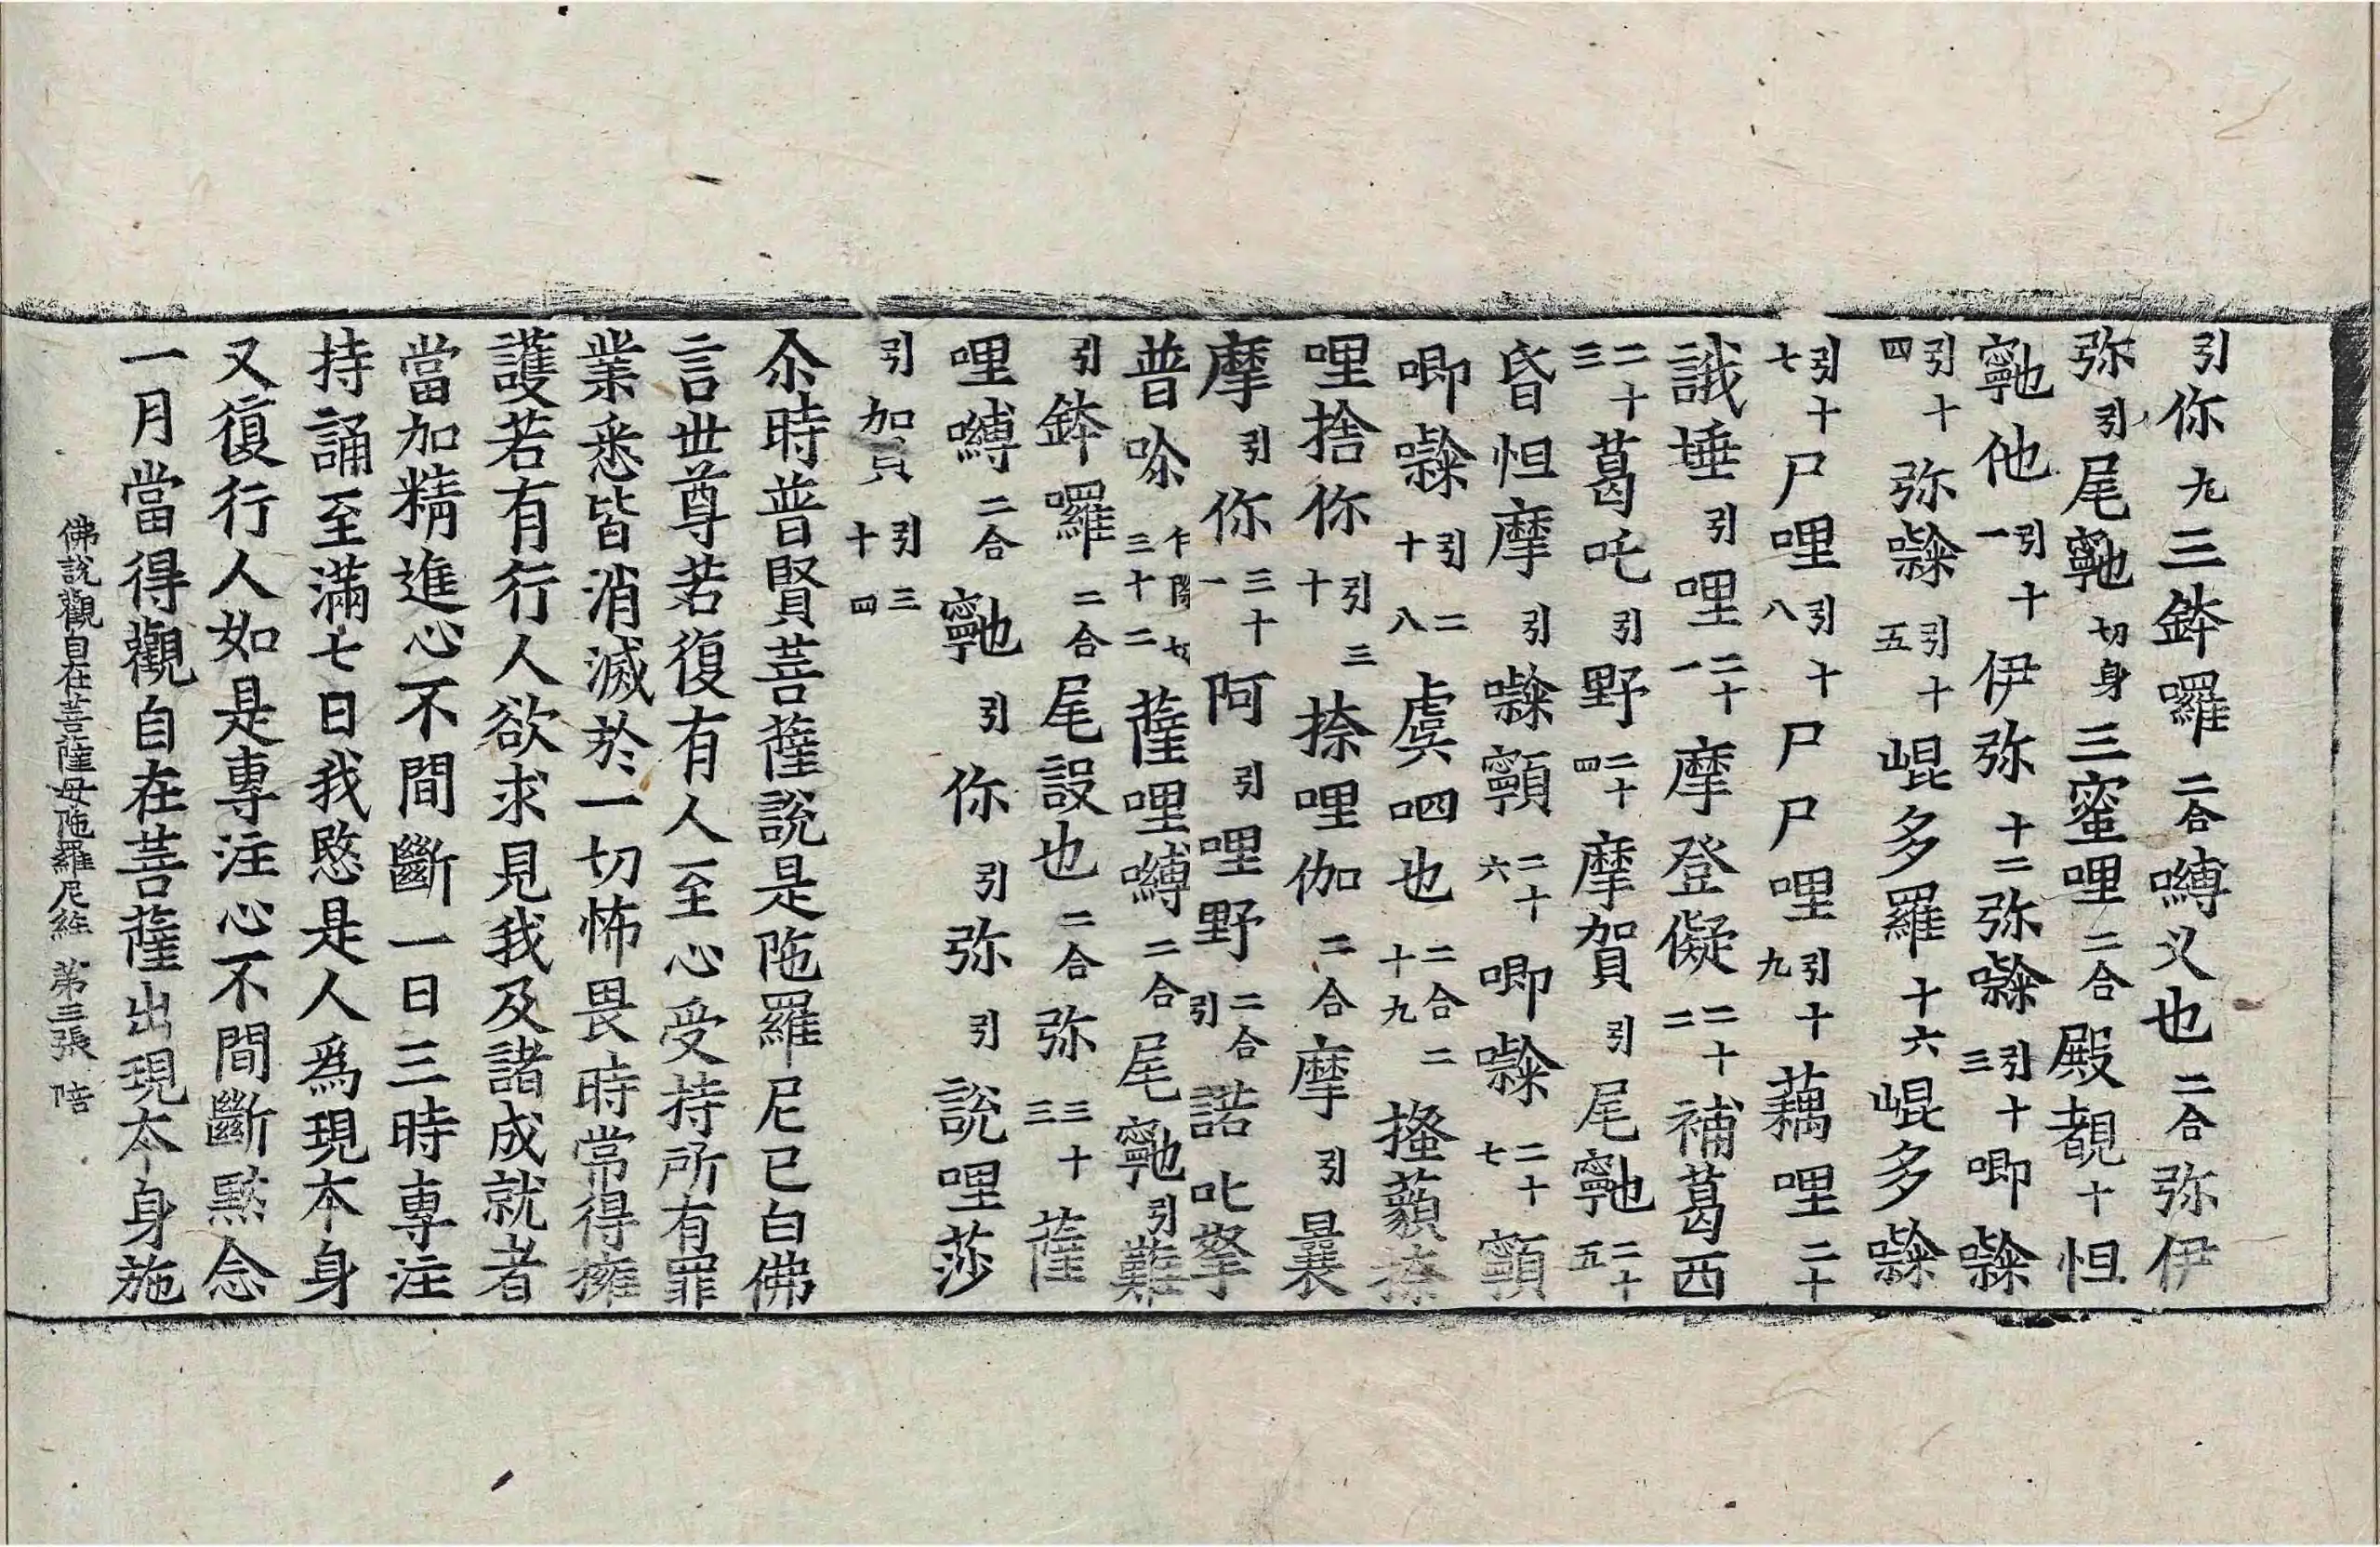 引你九三鉢囉二合嚩乂也二合弥伊
弥引尾𪘨切身三蜜哩二合殿覩十怛
𪘨他引十一伊弥十二弥㘑引十三唧㘑
引十四弥㘑引十五崐多羅十六崐多㘑
引十七尸哩引十八尸尸哩引十九藕哩二十
誐捶引哩二十一摩登儗二十二補葛西
二十三葛吒引野二十四摩賀引尾𪘨二十五
昏怛摩引㘑顐二十六唧㘑二十七顐
唧㘑引二十八虞呬也二合二十九搔藐捺
哩捨你引三十捺哩伽二合摩引曩
摩引你三十一阿引哩野二合引諾叱拏
普哆三十二薩哩嚩二合尾𪘨引難
引鉢囉二合尾設也二合弥三十三薩
哩嚩二合𪘨引你引弥引說哩莎
引加引三十四
尒時普賢菩薩說是陁羅尼已白佛
言世尊若復有人至心受持所有罪
業悉皆消滅於一切怖畏時常得擁
護若有行人欲求見我及諸成就者
當加精進心不間斷一日三時專注
持誦至滿七日我愍是人爲現本身
又復行人如是專注心不間斷黙念
一月當得觀自在菩薩出現夲身施
佛說觀自在菩薩母陁羅尼經 第三張 陪